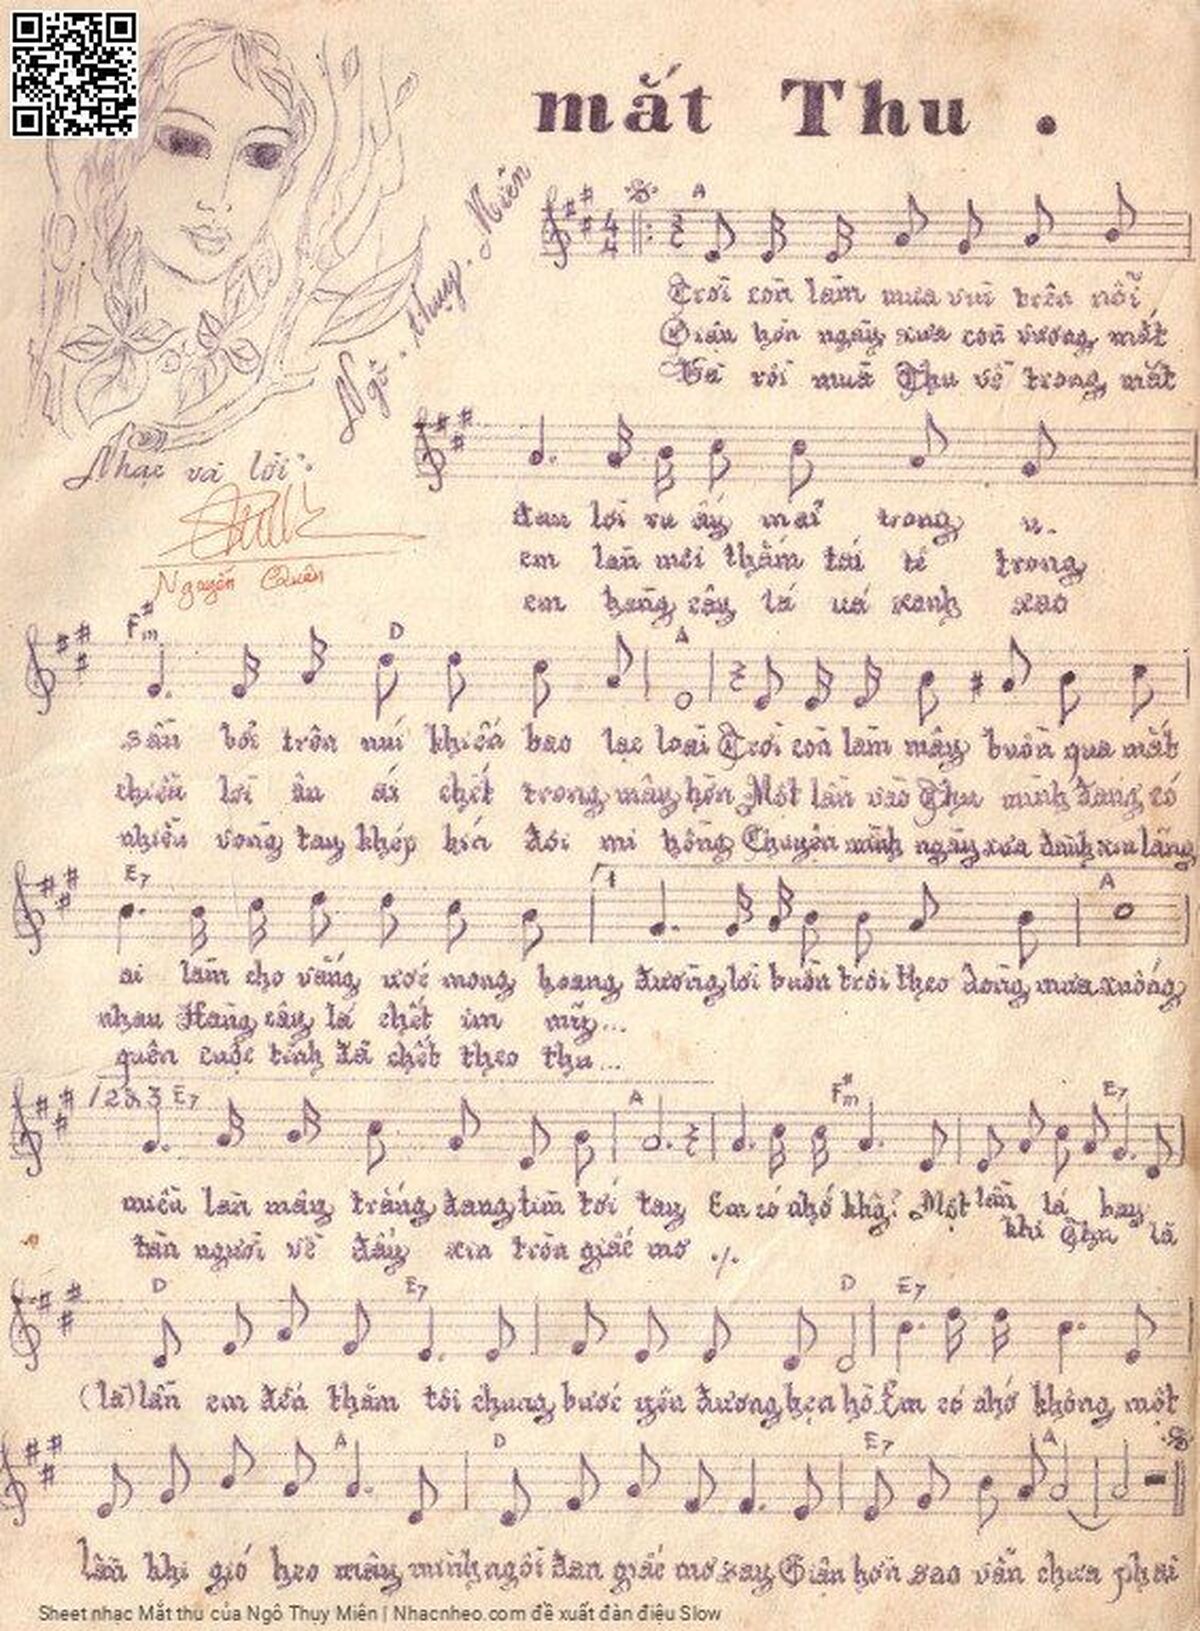 mắt Thu .
Ngô . thụy . Miên
Nhạc và lời :
Nguyễn Quân
A
Trời còn làm mưa vui trên nỗi
Giận hờn ngày xưa còn vương mắt
Và rồi mùa Thu về trong mắt
đau lời ru ấy mãi trong u.
em làn môi thắm tái tê trong
em hàng cây lá úa xanh xao
F#m D A
sầu bởi trôn núi khiến bao lạc loài Trời còn làm mây buồn qua mắt
chiều lời ân ái chết trong mây hờn Một lần vào Thu mình đang có
nhiều vòng tay khép kín đôi mi hồng Chuyện mình ngày xưa đành xin lãng
E7 1 A
ai làm cho vầng ước mong hoang đường lời buồn trôi theo dòng mưa xuống
nhau Hàng cây lá chết im mỹ...
quên cuộc tình đã chết theo thu...
1 2 & 3 E7 A F#m E7
miền làn mây trắng đang tìm tới tay Em có nhớ khg? Một lần lá bay
khi Thu là
tàn người về đây xin tròn giấc mơ ./.
D E7 D E7
(là) lần em đến thăm tôi chung bước yêu đương hẹn hò Em có nhớ không một
A D E7 A
lần khi gió heo mây mình ngồi đan giấc mơ say Giận hờn sao vẫn chưa phai
Sheet nhạc Mắt thu của Ngô Thụy Miên | Nhacnheo.com đề xuất đàn điệu Slow